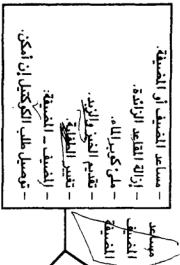 - مساعد المضيف أو المضيفة.
- إزالة المقاعد الزائدة.
- ملئ كوب الماء.
- تقديم الخبز والزبد.
- تغيير الطفاية.
- المضيف - المضيفة.
- توصيل طلب الكوكتيل إن أمكن.
مساعد
المضيف
المضيفة